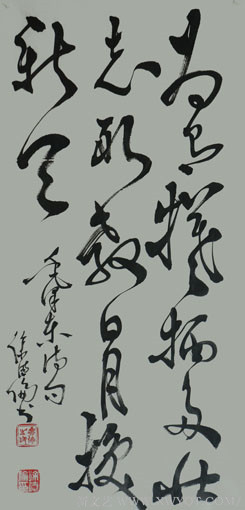 为有犧牲多壮
志敢教日月换
新天
毛泽东诗句